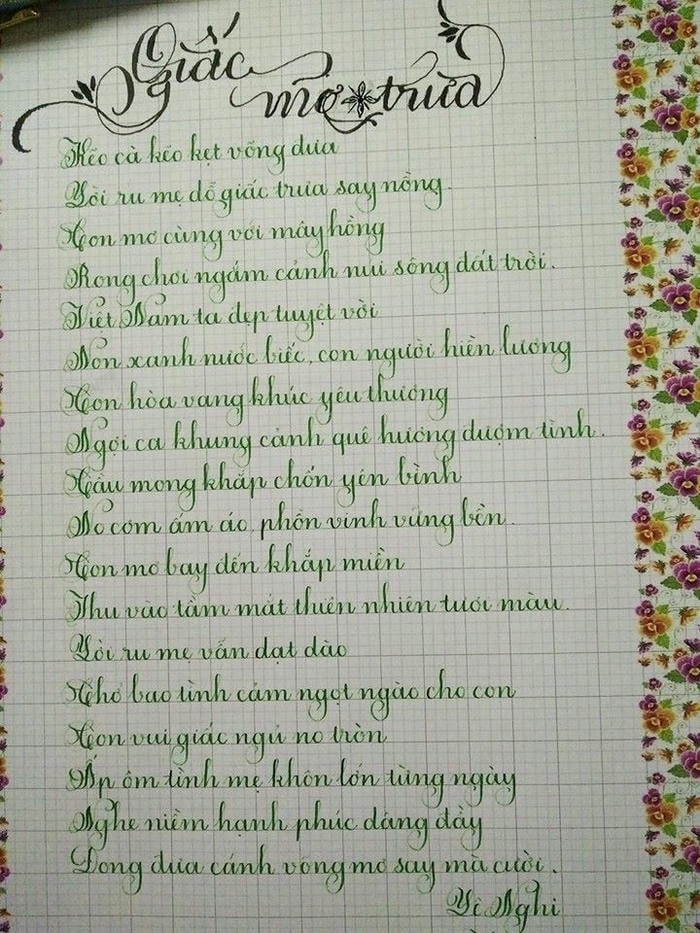 Giấc
mơ trưa
Kẽo cà kẽo kẹt võng đưa
Lời ru mẹ dỗ giấc trưa say nồng.
Con mơ cùng với mây hồng
Rong chơi ngắm cảnh núi sông đất trời.
Việt Nam ta đẹp tuyệt vời
Non xanh nước biếc, con người hiền lương
Con hòa vang khúc yêu thương
Ngợi ca khung cảnh quê hương đượm tình.
Cầu mong khắp chốn yên bình
No cơm ấm áo, phồn vinh vững bền.
Con mơ bay đến khắp miền
Thu vào tầm mắt thiên nhiên tươi màu.
Lời ru mẹ vẫn dạt dào
Chở bao tình cảm ngọt ngào cho con
Con vui giấc ngủ no tròn
Ấp ôm tình mẹ khôn lớn từng ngày
Nghe niềm hạnh phúc dâng đầy
Đong đưa cánh võng mơ say mà cười.
Lê Nghi